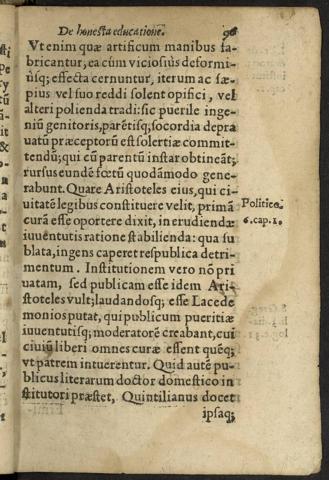 De honesta educatione.
Vt enim quæ artificum manibus fa-
bricantur, ea cùm viciosiùs deformi-
ùsq; effecta cernuntur, iterum ac sæ-
pius vel suo reddi solent opifici, vel
alteri polienda tradi: sic puerile inge-
niũ genitoris, parẽtisq; socordia depra
uatũ præceptorũ est solertiæ commit-
tendũ; qui cũ parentũ instar obtineãt;
rursus eundẽ fœtũ quodãmodo gene-
rabunt. Quare Aristoteles eius, qui ci-
uitatẽ legibus constituere velit, primã
curã esse oportere dixit, in erudiendæ
iuuentutis ratione stabilienda: qua su
blata, ingens caperet respublica detri-
mentum. Institutionem vero nõ pri
uatam, sed publicam esse idem Ari-
stoteles vult; laudandosq; esse Lacede
monios putat, qui publicum pueritiæ
iuuentutisq; moderatorẽ creabant, cui
ciuiũ liberi omnes curæ essent quẽq;
vt patrem intuerentur. Quid autẽ pu-
blicus literarum doctor domestico in
stitutori præstet, Quintilianus docet
ipsaq;
Politico.
6. cap. 1.